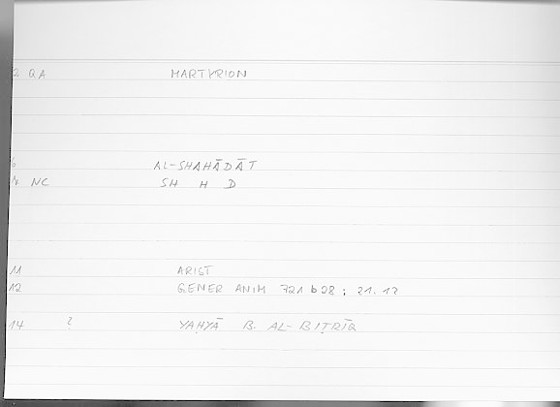 2 QA MARTYRION
AL-SHAHĀDĀT
NC SH H D
11 ARIST
12 GENER ANIM 721 b28; 21.17
14 ? YAḤYĀ B. AL-BIṬRĪQ